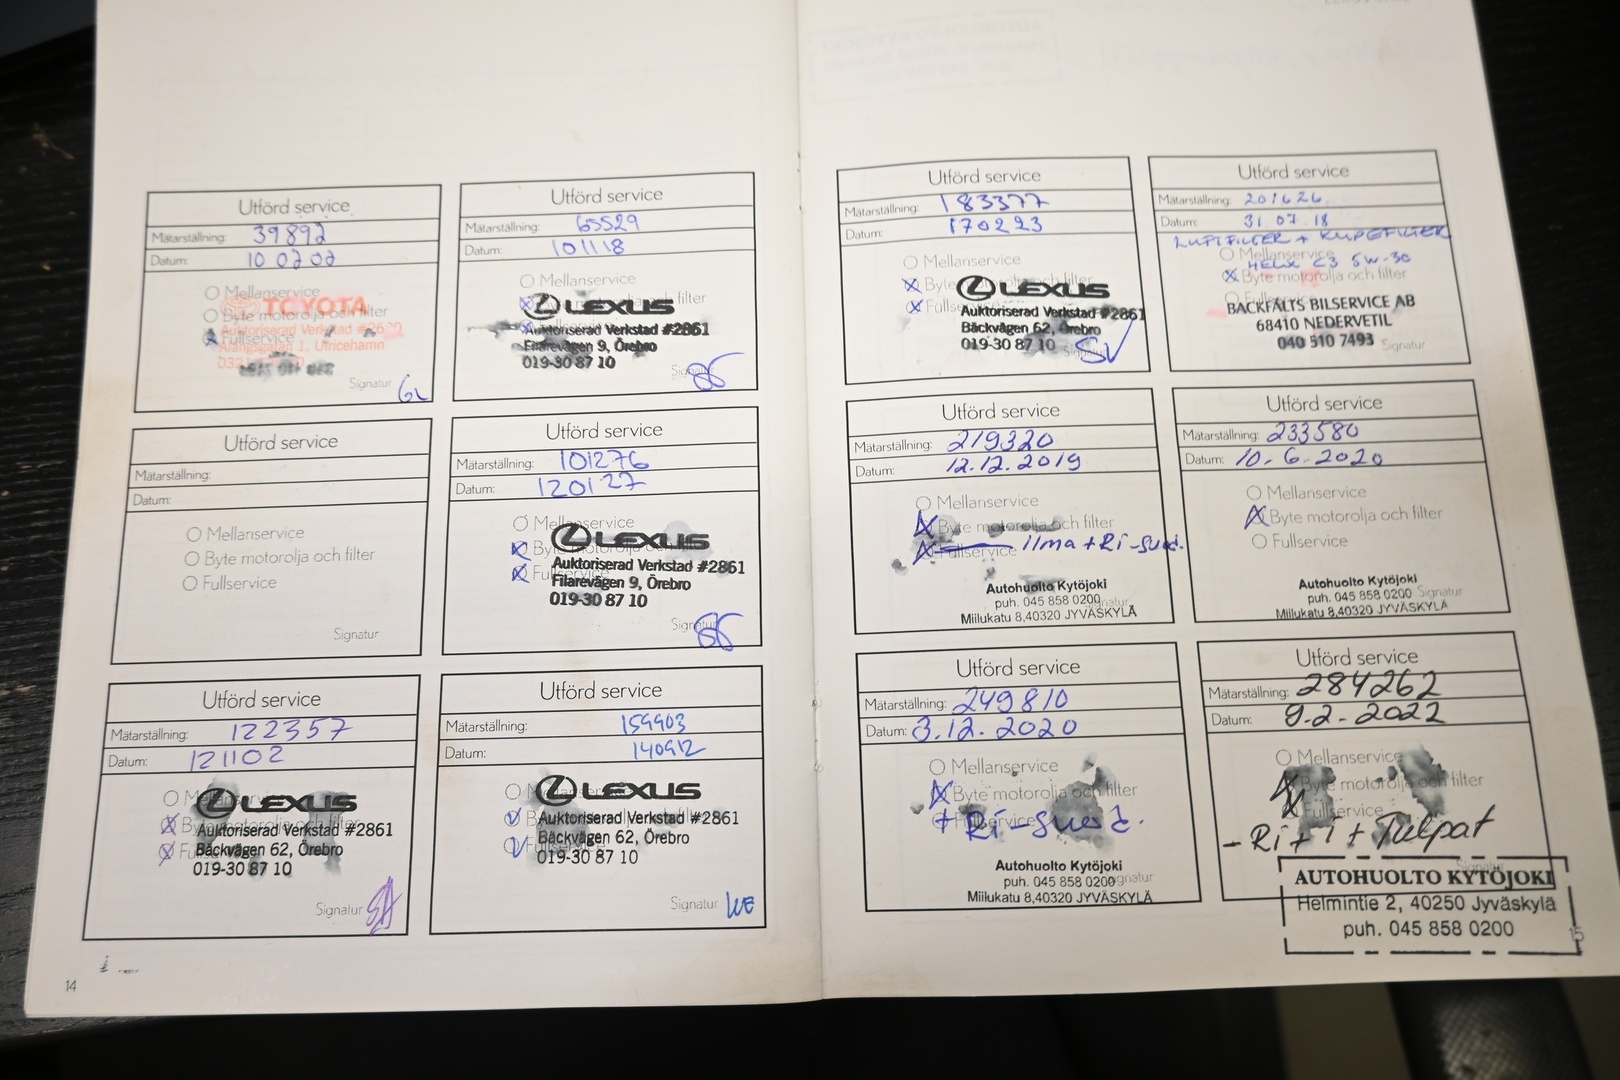 Utförd service
Mätarställning: 39892
Datum: 100202
Mellanservice
Byte motorolja och filter
Fullservice
TOYOTA
Auktoriserad Verkstad
1, Ulricehamn
Signatur GL
Utförd service
Mätarställning: 65529
Datum: 101118
Mellanservice
LEXUS
Auktoriserad Verkstad #2861
Filarevägen 9, Örebro
019-30 87 10
Utförd service
Mätarställning:
Datum:
Mellanservice
Byte motorolja och filter
Fullservice
Signatur
Utförd service
Mätarställning: 101276
Datum: 120127
Mellanservice
LEXUS
Auktoriserad Verkstad #2861
Filarevägen 9, Örebro
019-30 87 10
Signatur
Utförd service
Mätarställning: 122357
Datum: 121102
LEXUS
Auktoriserad Verkstad #2861
Bäckvägen 62, Örebro
019-30 87 10
Signatur
Utförd service
Mätarställning: 159903
Datum: 140912
LEXUS
Auktoriserad Verkstad #2861
Bäckvägen 62, Örebro
019-30 87 10
Signatur
14
Utförd service
Mätarställning: 183377
Datum: 170223
Mellanservice
LEXUS
Auktoriserad Verkstad #2861
Bäckvägen 62, Örebro
019-30 87 10
SV
Utförd service
Mätarställning: 201626
Datum: 31.07.18
LUFTFILTER + KUPEFILTER
Mellanservice
HELIX C3 5W-30
Byte motorolja och filter
BACKFÄLTS BILSERVICE AB
68410 NEDERVETIL
040 510 7493 Signatur
Utförd service
Mätarställning: 219320
Datum: 12.12.2019
Mellanservice
Byte motorolja och filter
Fullservice ilma + Ri-suod.
Autohuolto Kytöjoki
puh. 045 858 0200
Miilukatu 8,40320 JYVÄSKYLÄ
Utförd service
Mätarställning: 233580
Datum: 10.6.2020
Mellanservice
Byte motorolja och filter
Fullservice
Autohuolto Kytöjoki
puh. 045 858 0200 Signatur
Miilukatu 8,40320 JYVÄSKYLÄ
Utförd service
Mätarställning: 249810
Datum: 3.12.2020
Mellanservice
Byte motorolja och filter
+ Ri-suod.
Autohuolto Kytöjoki
puh. 045 858 0200
Miilukatu 8,40320 JYVÄSKYLÄ
Utförd service
Mätarställning: 284262
Datum: 9.2.2022
Mellanservice
Byte motorolja och filter
Fullservice
- Ri + i + Tulpat
AUTOHUOLTO KYTÖJOKI
Helmintie 2, 40250 Jyväskylä
puh. 045 858 0200
15